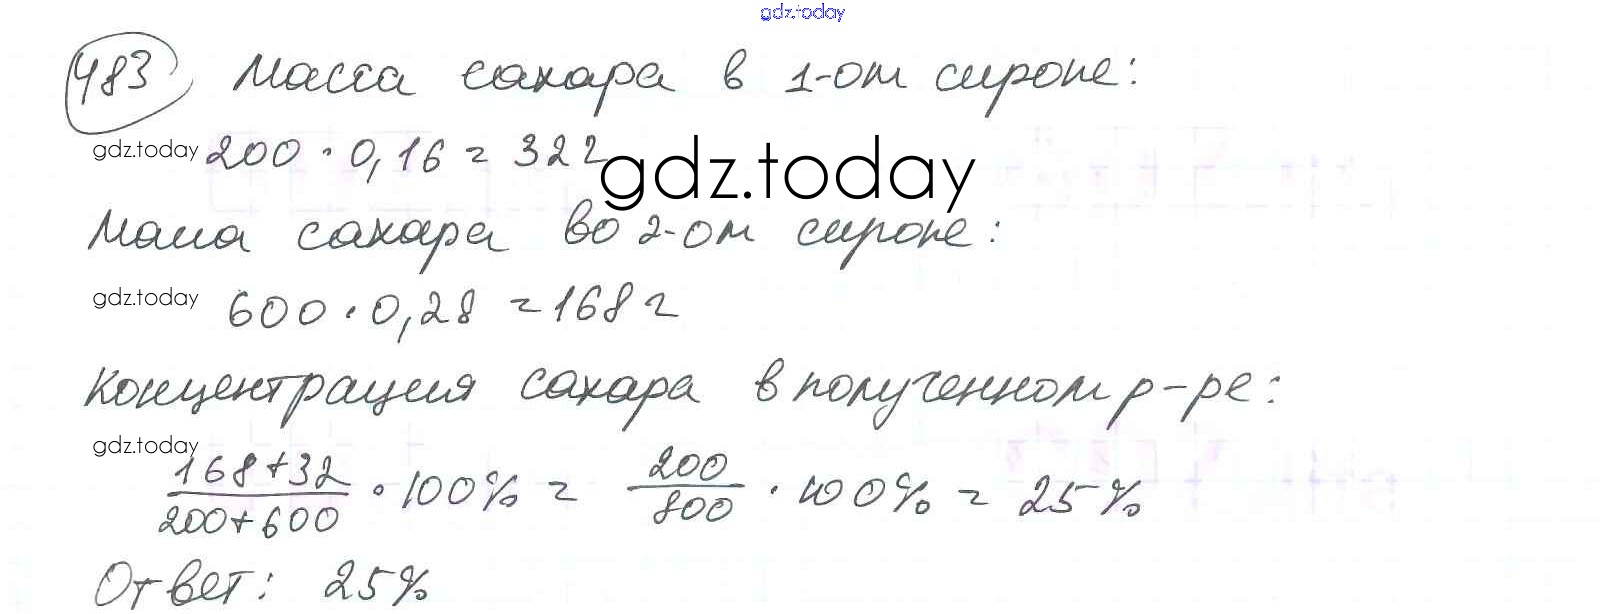 gdz.today
483 Масса сахара в 1-ом сиропе:
gdz.today 200 · 0,16 = 32 г
gdz.today
Масса сахара во 2-ом сиропе:
gdz.today 600 · 0,28 = 168 г
Концентрация сахара в полученном р-ре:
gdz.today
168+32 / 200+600 · 100% = 200 / 800 · 100% = 25%
Ответ: 25%